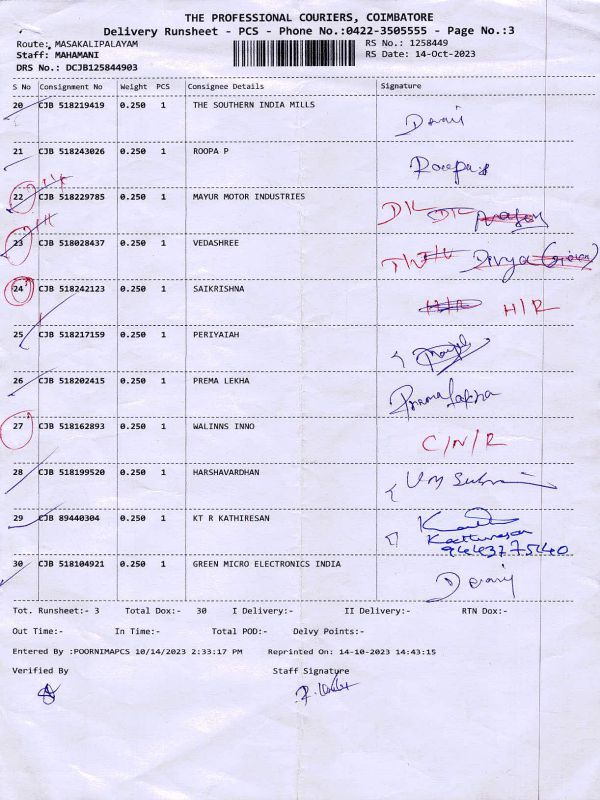 THE PROFESSIONAL COURIERS, COIMBATORE
Delivery Runsheet - PCS - Phone No.:0422-3505555 - Page No.:3
Route: MASAKALIPALAYAM RS No.: 1258449
Staff: MAHAMANI RS Date: 14-Oct-2023
DRS No.: DCJB125844903
S No Consignment No Weight PCS Consignee Details Signature
20 CJB 518219419 0.250 1 THE SOUTHERN INDIA MILLS
21 CJB 518243026 0.250 1 ROOPA P Roopa
22 CJB 518229785 0.250 1 MAYUR MOTOR INDUSTRIES D/L D/L
23 CJB 518028437 0.250 1 VEDASHREE Divya
24 CJB 518242123 0.250 1 SAIKRISHNA H/R H/R
25 CJB 518217159 0.250 1 PERIYAIAH
26 CJB 518202415 0.250 1 PREMA LEKHA
27 CJB 518162893 0.250 1 WALINNS INNO C/N/R
28 CJB 518199520 0.250 1 HARSHAVARDHAN
29 CJB 89440304 0.250 1 KT R KATHIRESAN
30 CJB 518104921 0.250 1 GREEN MICRO ELECTRONICS INDIA
Tot. Runsheet:- 3 Total Dox:- 30 I Delivery:- II Delivery:- RTN Dox:-
Out Time:- In Time:- Total POD:- Delvy Points:-
Entered By :POORNIMAPCS 10/14/2023 2:33:17 PM Reprinted On: 14-10-2023 14:43:15
Verified By Staff Signature